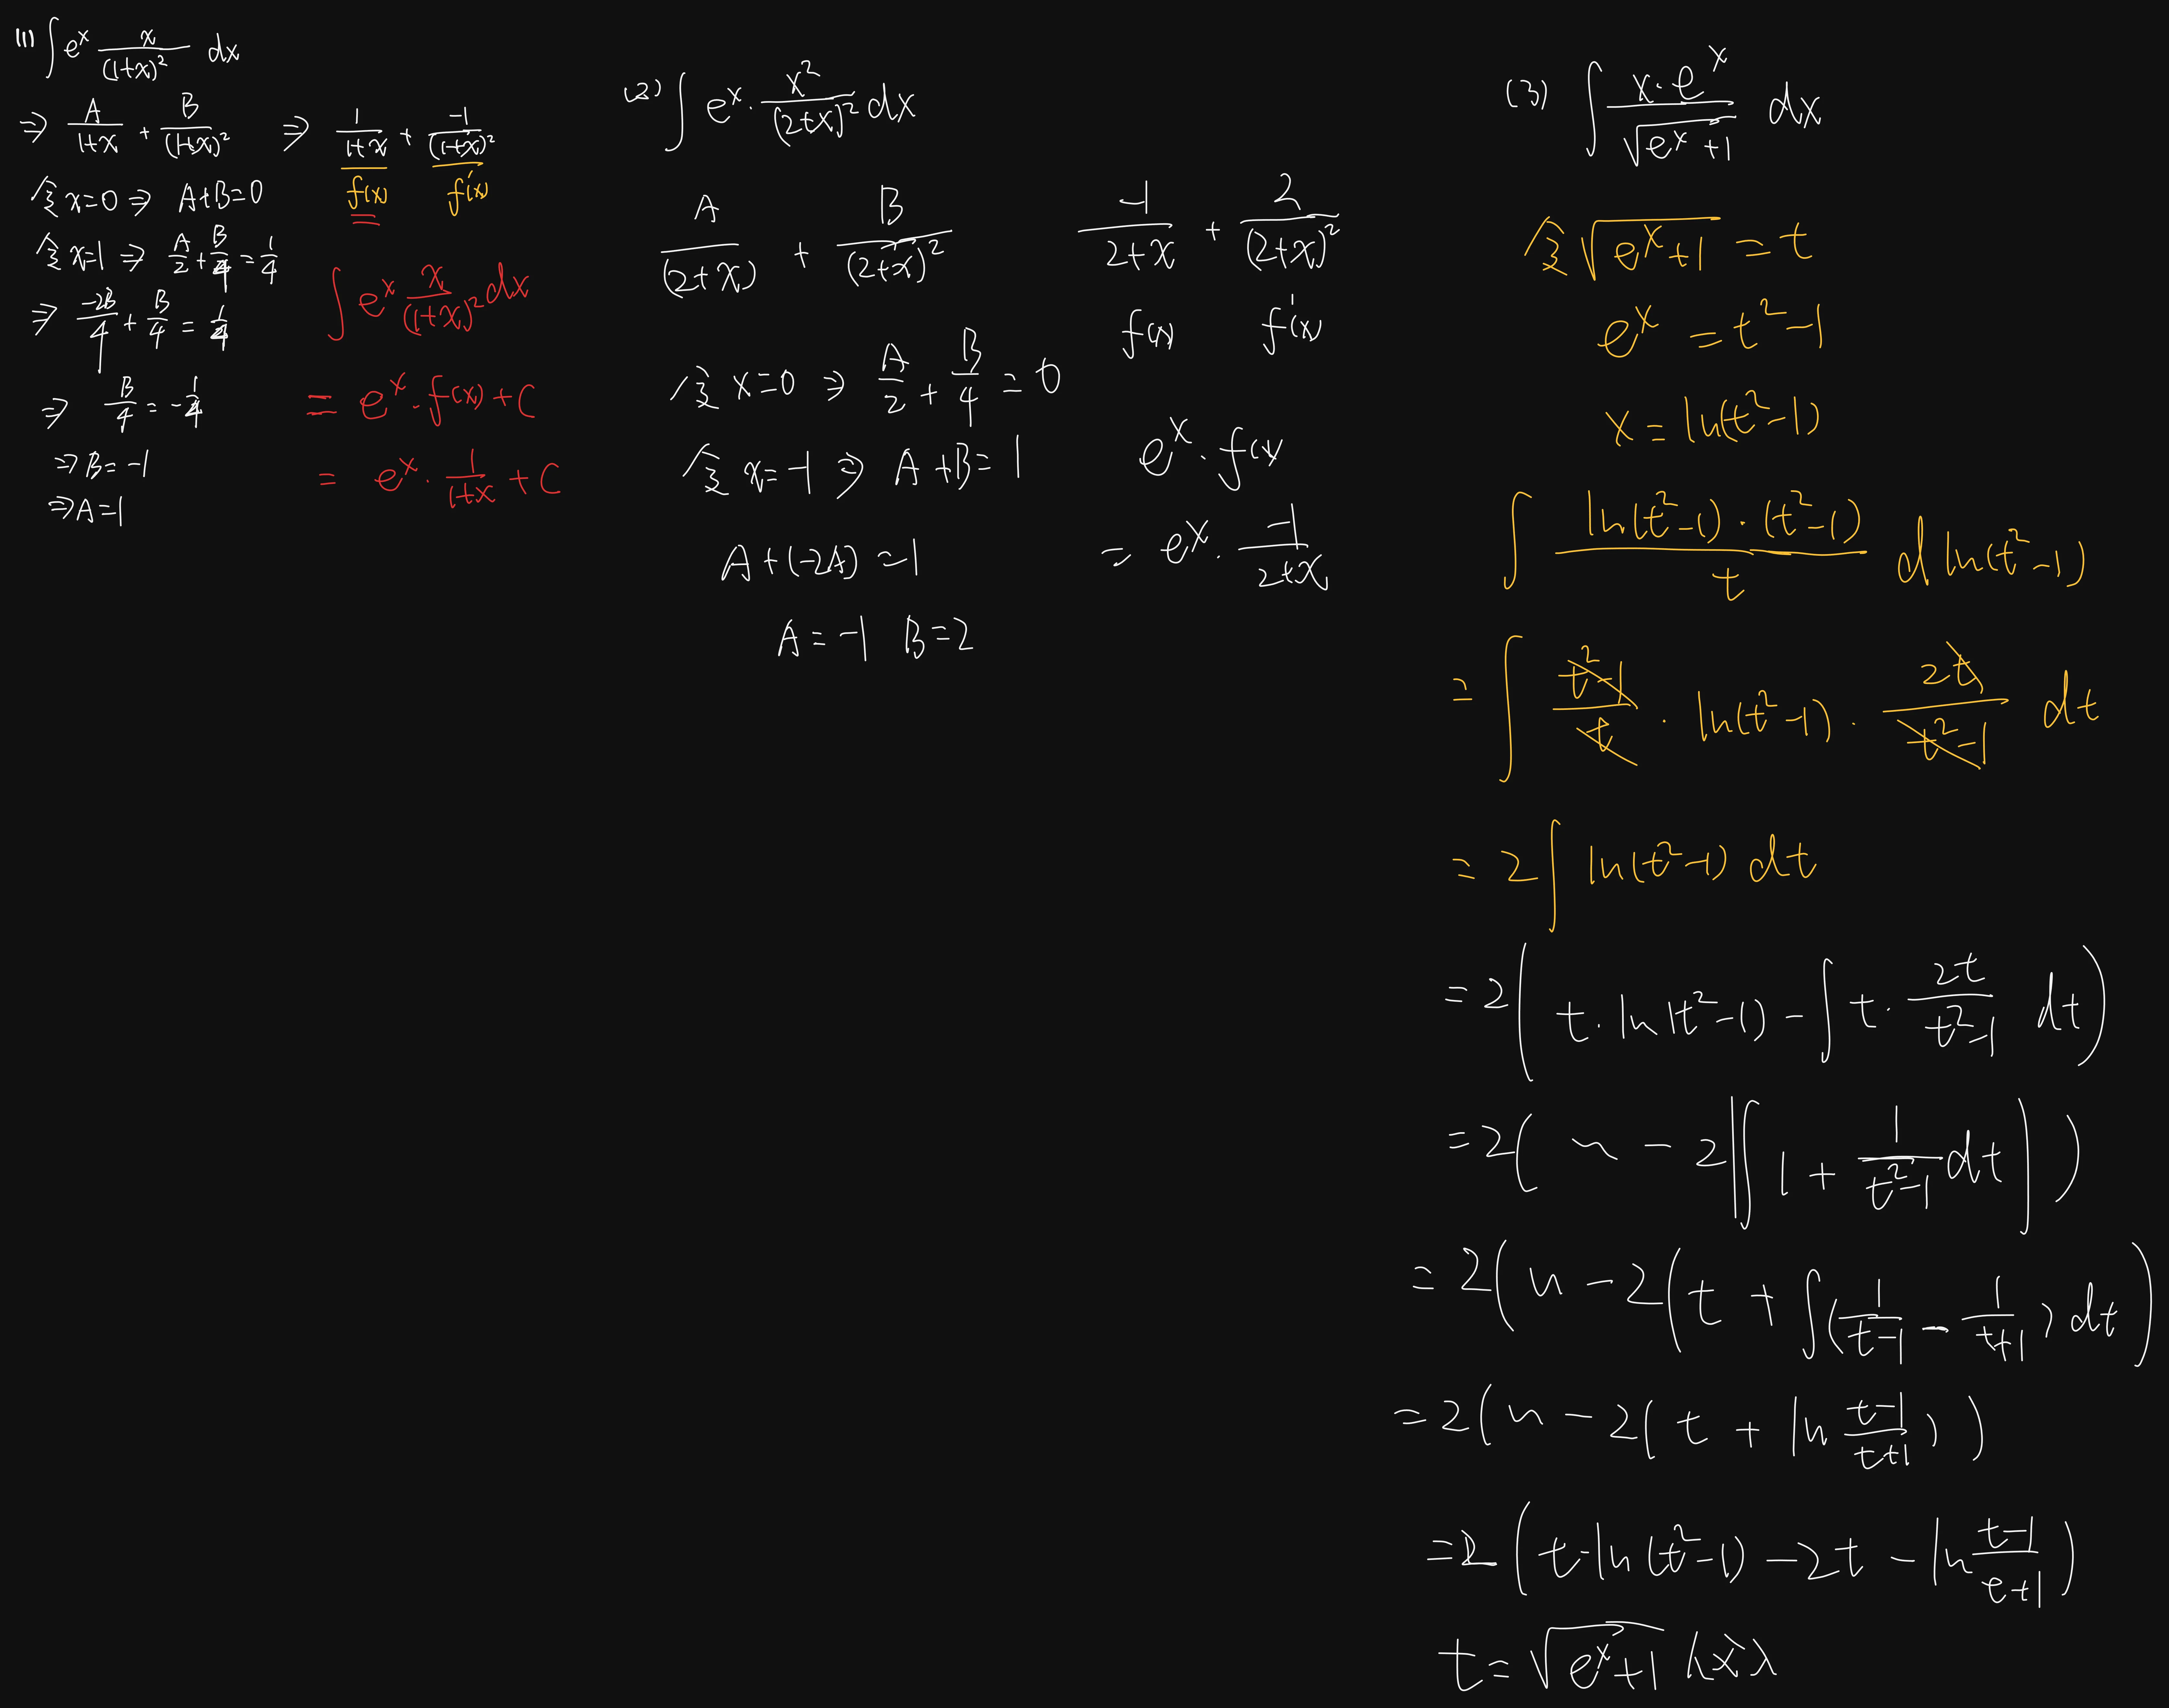 (1) ∫ e^x x/(1+x)^2 dx
⇒ A/(1+x) + B/(1+x)^2 ⇒ 1/(1+x) + -1/(1+x)^2
f(x) f'(x)
令 x=0 ⇒ A+B=0
令 x=1 ⇒ A/2 + B/4 = 1/4
⇒ -2B/4 + B/4 = 1/4
⇒ B/4 = -1/4
⇒ B=-1
⇒ A=1
∫ e^x x/(1+x)^2 dx
= e^x · f(x) + C
= e^x · 1/(1+x) + C
(2) ∫ e^x · x^2/(2+x)^2 dx
A/(2+x) + B/(2+x)^2
令 x=0 ⇒ A/2 + B/4 = 0
令 x=-1 ⇒ A+B=1
A+(-2A)=1
A=-1 B=2
-1/(2+x) + 2/(2+x)^2
f(x) f'(x)
e^x · f(x)
= e^x · -1/(2+x)
(3) ∫ x·e^x/√(e^x+1) dx
令 √(e^x+1) = t
e^x = t^2-1
x = ln(t^2-1)
∫ ln(t^2-1)·(t^2-1)/t d ln(t^2-1)
= ∫ (t^2-1)/t · ln(t^2-1) · 2t/(t^2-1) dt
= 2∫ ln(t^2-1) dt
= 2( t·ln(t^2-1) - ∫ t· 2t/(t^2-1) dt )
= 2( ~ - 2[∫ 1 + 1/(t^2-1) dt] )
= 2( ~ - 2( t + ∫( 1/(t-1) - 1/(t+1) ) dt )
= 2( ~ - 2( t + ln (t-1)/(t+1) ) )
= 2( t·ln(t^2-1) - 2t - ln (t-1)/(t+1) )
t = √(e^x+1) 代入